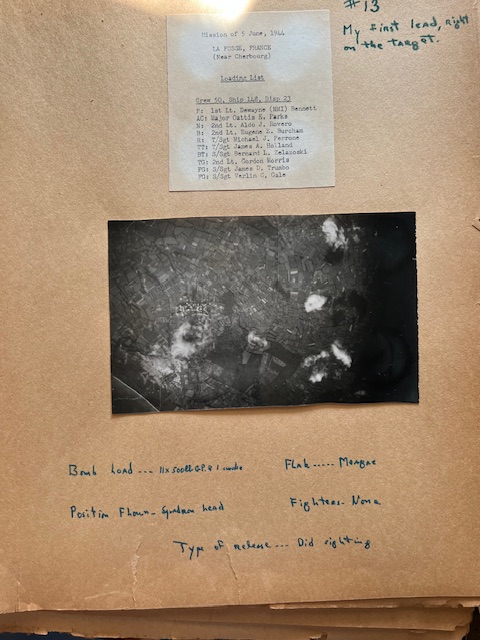 #13
My first lead, right
on the target.
Mission of 5 June, 1944
LA FOSSE, FRANCE
(Near Cherbourg)
Loading List
Crew 50, Ship 148, Disp 23
P: 1st Lt. Dewayne (NMI) Bennett
AC: Major Oattis E. Parks
N: 2nd Lt. Aldo J. Rovero
B: 2nd Lt. Eugene E. Burcham
R: T/Sgt Michael J. Perrone
TT: T/Sgt James A. Holland
BT: S/Sgt Bernard L. Zelazoski
TG: 2nd Lt. Gordon Morris
FG: S/Sgt James D. Trumbo
FG: S/Sgt Verlin O. Gale
Bomb load --- 11x500lb G.P. & 1 smoke
Flak ----- Meagre
Position Flown - Squadron lead
Fighters - None
Type of release --- Did sighting